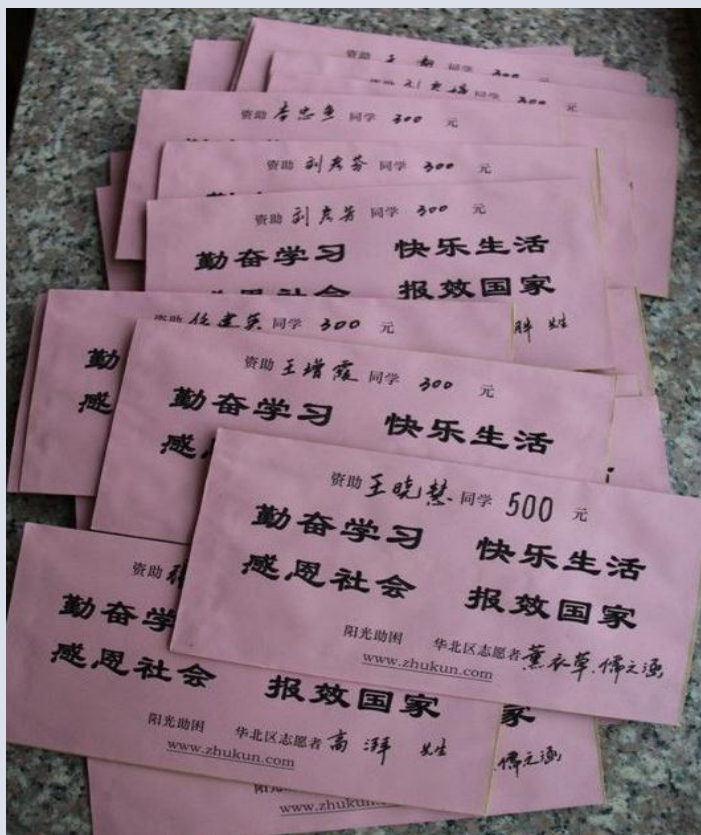 资助 王 同学 300 元
资助 同学 300 元
资助 李忠鱼 同学 300 元
资助 刘彦芬 同学 300 元
资助 刘彦芳 同学 300 元
勤奋学习 快乐生活
感恩社会 报效国家
资助 任建英 同学 300 元
勤
感
资助 王增霞 同学 300 元
勤奋学习 快乐生活
感
资助 王晓慧 同学 500 元
勤奋学习 快乐生活
感恩社会 报效国家
阳光助困 华北区志愿者 薰衣草.儒之涵
www.zhukun.com
资助
勤奋学
感恩社会 报效国家
阳光助困 华北区志愿者 高湃 先生
www.zhukun.com
家
儒之涵
阳光
www.zhukun.com